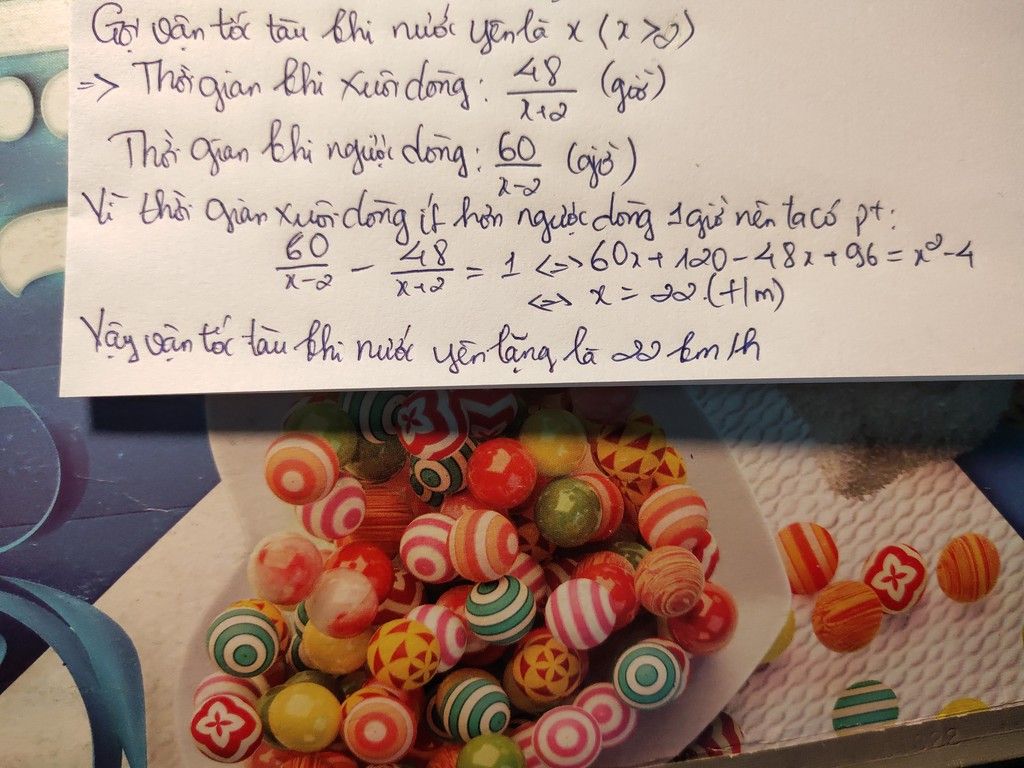 Gọi vận tốc tàu khi nước yên là x (x>2)
=> Thời gian khi xuôi dòng: 48/x+2 (giờ)
Thời gian khi ngược dòng: 60/x-2 (giờ)
Vì thời gian xuôi dòng ít hơn ngược dòng 1 giờ nên ta có pt:
60/x-2 - 48/x+2 = 1 <=> 60x+120-48x+96=x²-4
<=> x = 22.(t/m)
Vậy vận tốc tàu khi nước yên lặng là 22 km/h
322